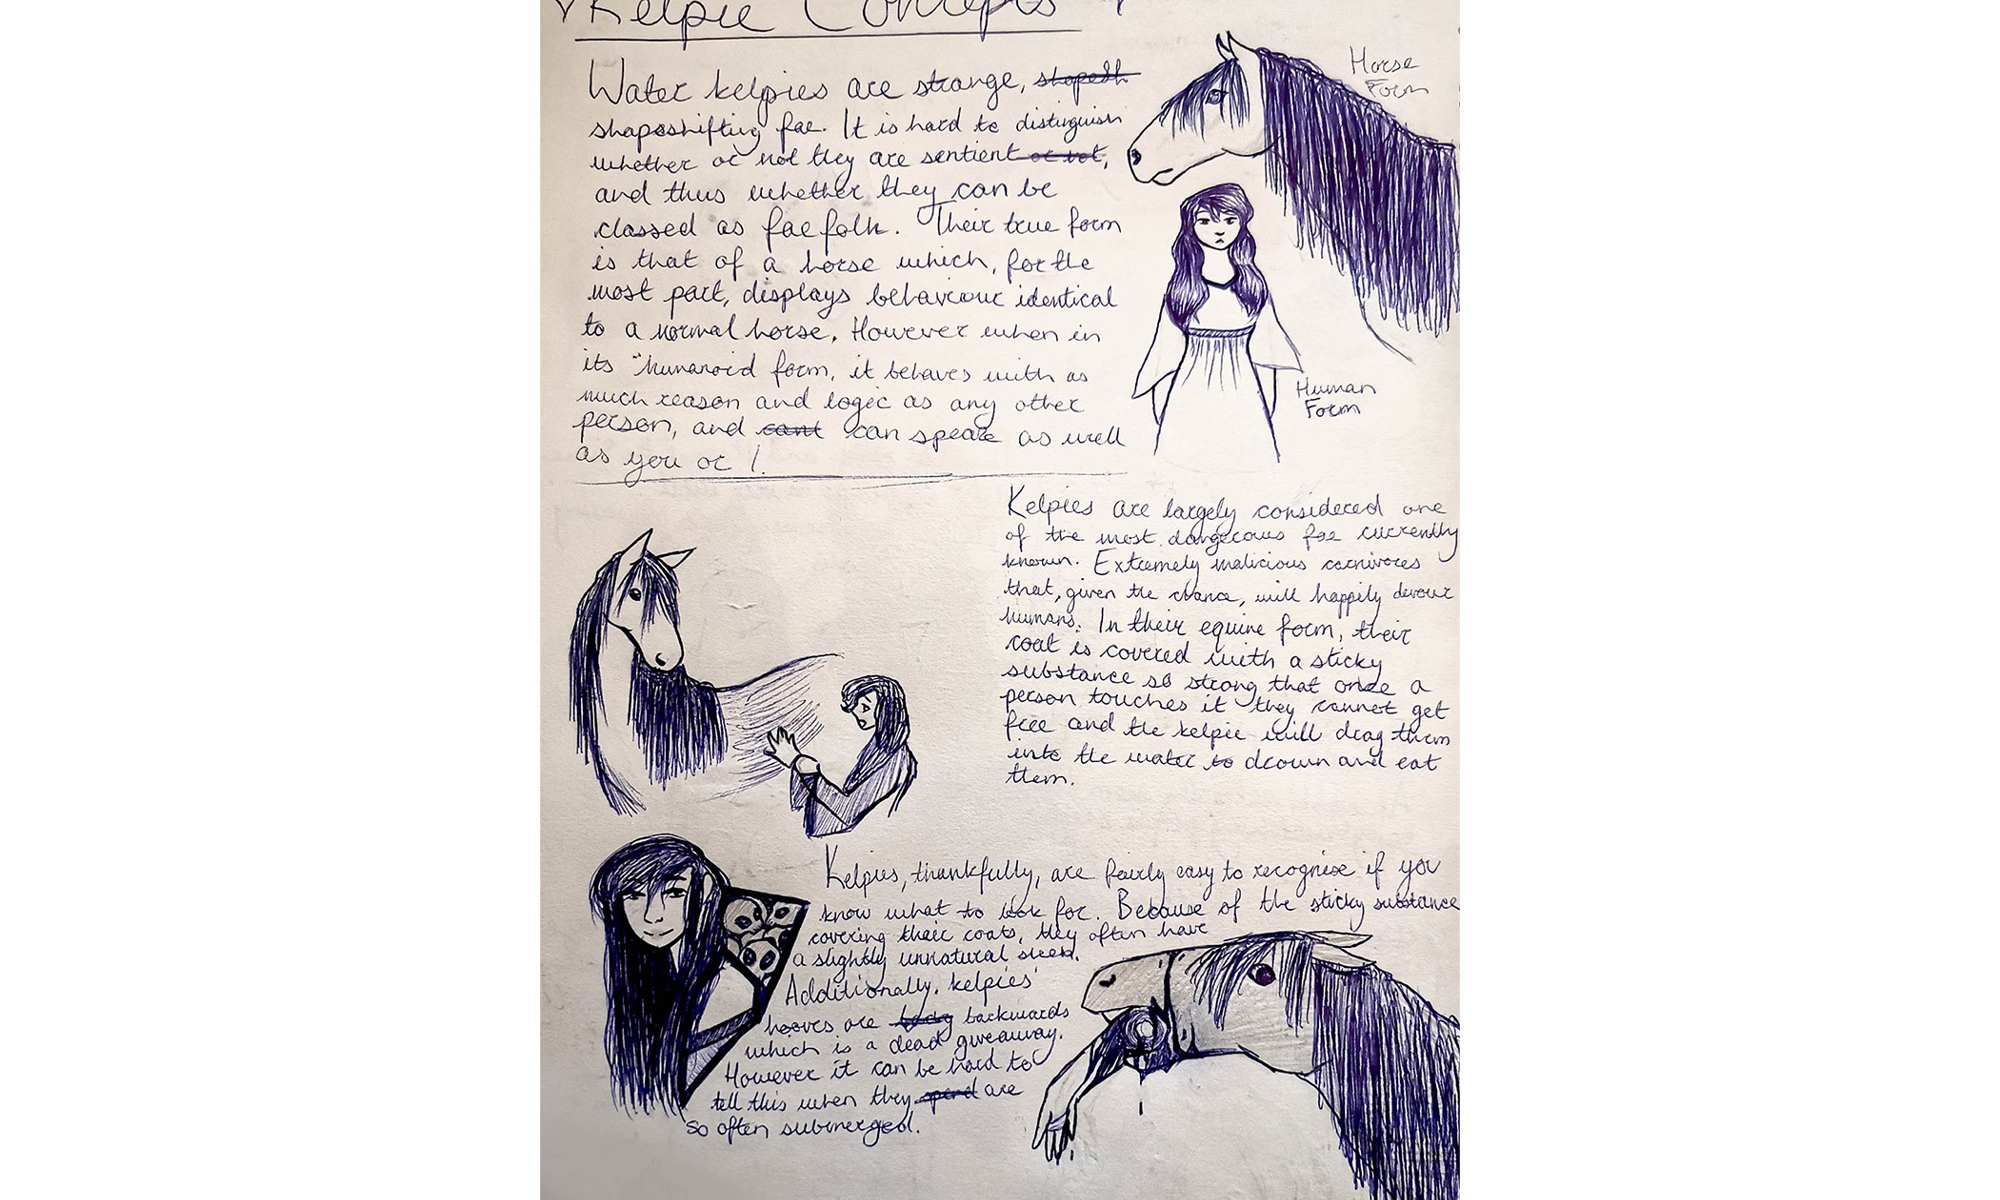 Kelpie Concepts
Water kelpies are strange, shapesh
shapeshifting fae. It is hard to distinguish
whether or not they are sentient or not,
and thus whether they can be
classed as fae folk. Their true form
is that of a horse which, for the
most part, displays behaviour identical
to a normal horse. However when in
its humanoid form, it behaves with as
much reason and logic as any other
person, and cant can speak as well
as you or I.
Horse
Form
Human
Form
Kelpies are largely considered one
of the most dangerous fae currently
known. Extremely malicious carnivores
that, given the chance, will happily devour
humans. In their equine form, their
coat is covered with a sticky
substance so strong that once a
person touches it they cannot get
free and the kelpie will drag them
into the water to drown and eat
them.
Kelpies, thankfully, are fairly easy to recognise if you
know what to look for. Because of the sticky substance
covering their coats, they often have
a slightly unnatural sheen.
Additionally, kelpies'
hooves are backwards
which is a dead giveaway.
However it can be hard to
tell this when they spend are
so often submerged.